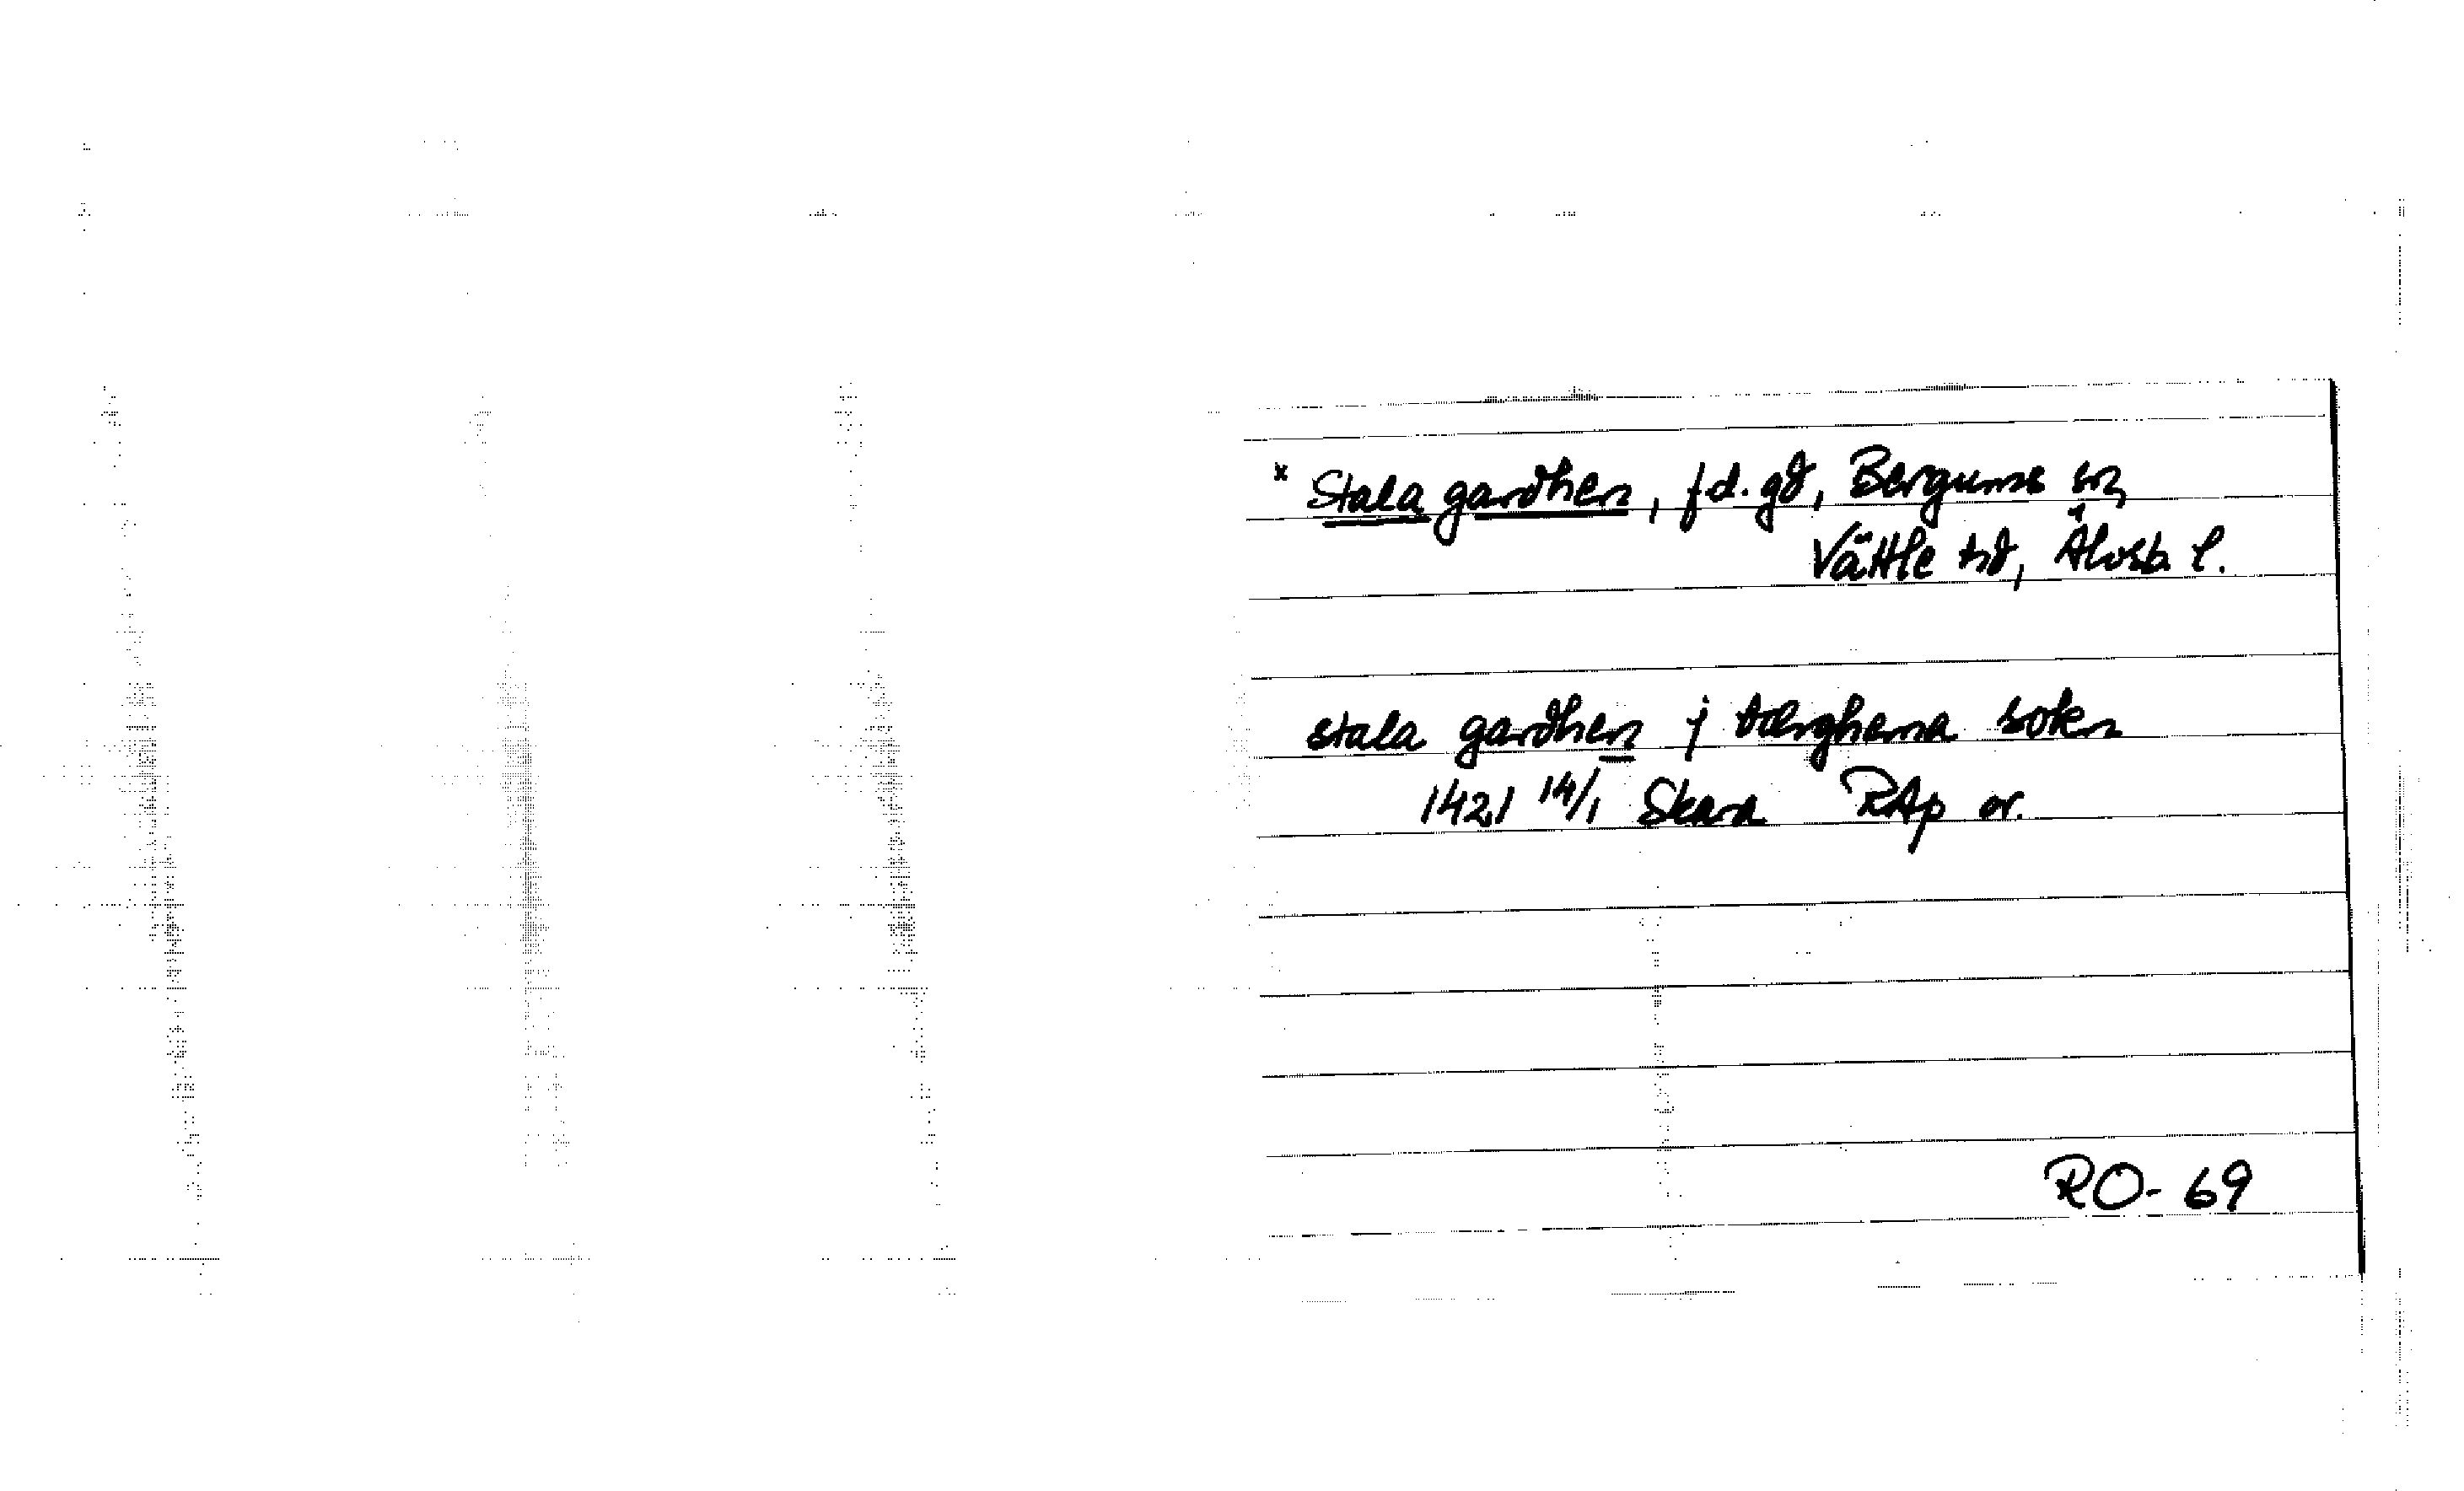 * Stala gardhen, f.d. gd, Bergums sn,
Vättle hd, Älvsb. l.
stala gardhen j bærghema sokn
1421 14/1 Skara RAp or.
RO-69